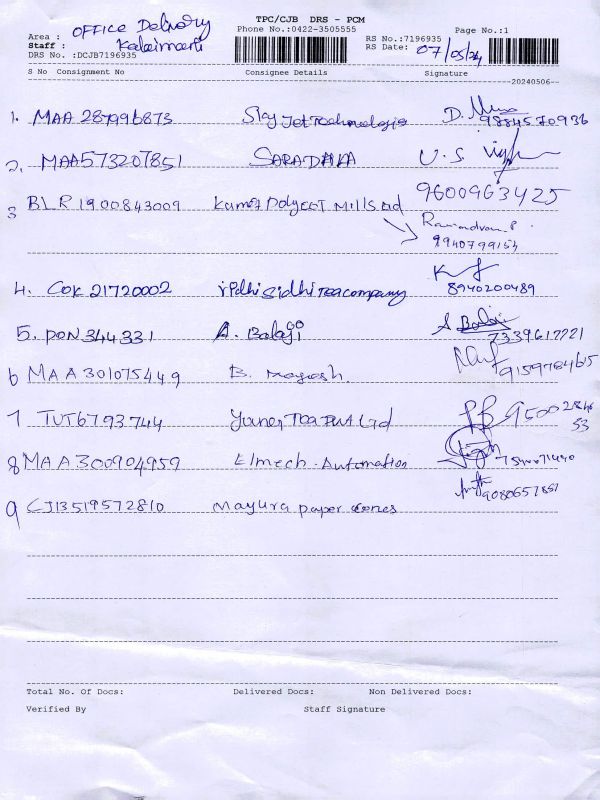 TPC/CJB DRS - PCM
Area : OFFICE Delivery
Phone No.:0422-3505555
Page No.:1
Staff : Kalaimani
RS No.:7196935
DRS No. :DCJB7196935
RS Date: 07/05/24
S No Consignment No Consignee Details Signature
20240506--
1. MAA 287996873 Sky Jet Technologis D. 9884570936
2. MAA573207851 SARADHA U.S. 9600963425
3 BLR 1900843009 Polycot Mills
9940799154
4. COK 21720002 ridhi Sidhi Tea company 8940200489
5. PON 344331 A. Balaji A Balaji 7339617721
6 MAA 301075449 B. 9159784615
7 TUT6793744 Tea Pvt Ltd 95002846
53
8 MAA300904959 Elmech. Automation
9 CJB519572810 Mayura paper cones 9080657851
Total No. Of Docs: Delivered Docs: Non Delivered Docs:
Verified By Staff Signature